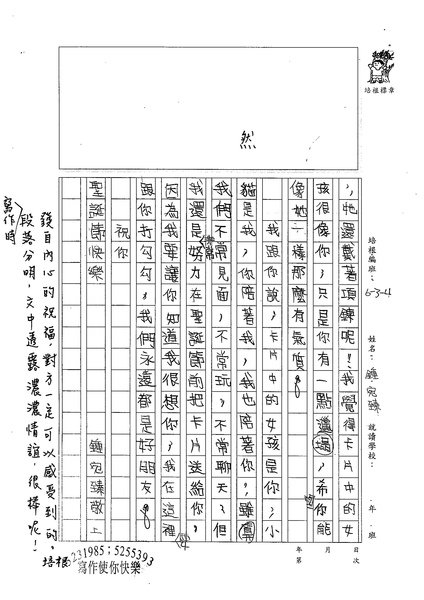 培根標章
培根編班：6-3-4 姓名：鍾宛臻 就讀學校： 年 班
年 月 日 次
然
，牠還戴著項鍊呢！我覺得卡片中的女
孩很像你，只是你有一點邋遢，希望你能
像她一樣那麼有氣質。
我跟你說，卡片中的女孩是你，小
貓是我，你陪著我，我也陪著你，雖
我們不常見面，不常玩，不常聊天，但
我還是努力在聖誕節前把卡片送給你，
因為我要讓你知道我很想你，我在這裡
跟你打勾勾，我們永遠都是好朋友。
祝你
聖誕節快樂
鍾宛臻敬上
發自內心的祝福，對方一定可以感受到的。
寫作時
段落分明，文中透露濃濃情誼，很棒呢！
培根
231985；5255393
寫作使你快樂